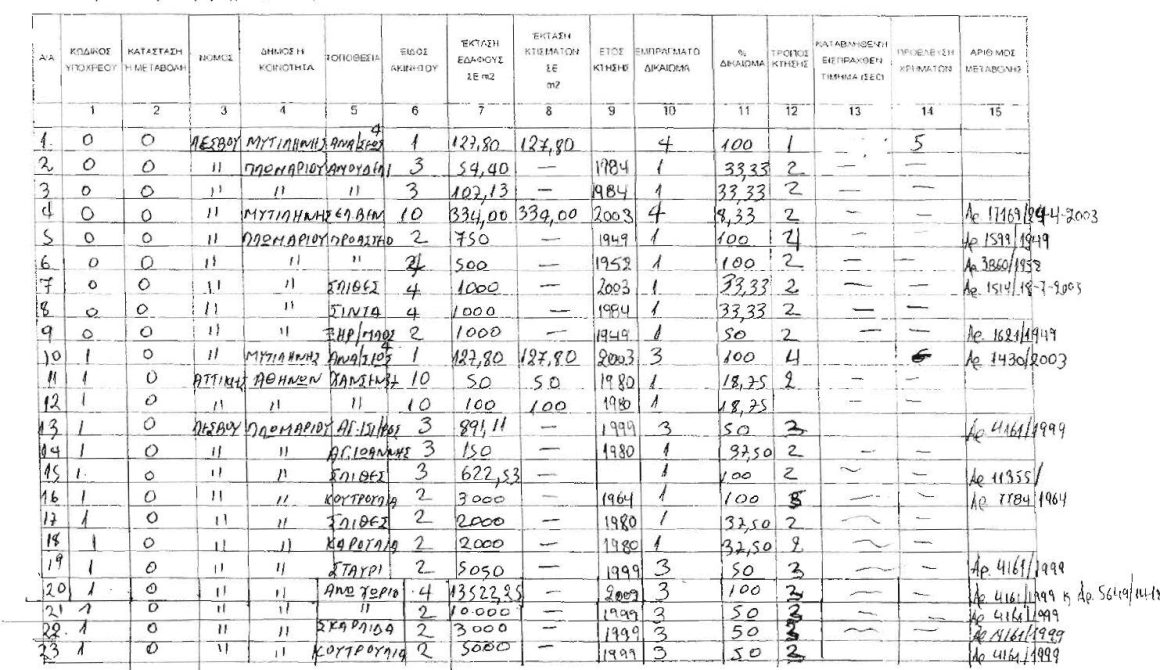 Α/Α ΚΩΔΙΚΟΣ ΥΠΟΧΡΕΟΥ ΚΑΤΑΣΤΑΣΗ Ή ΜΕΤΑΒΟΛΗ ΝΟΜΟΣ ΔΗΜΟΣ Η ΚΟΙΝΟΤΗΤΑ ΤΟΠΟΘΕΣΙΑ ΕΙΔΟΣ ΑΚΙΝΗΤΟΥ ΈΚΤΑΣΗ ΕΔΑΦΟΥΣ ΣΕ m2 ΈΚΤΑΣΗ ΚΤΙΣΜΑΤΩΝ ΣΕ m2 ΕΤΟΣ ΚΤΗΣΗΣ ΕΜΠΡΑΓΜΑΤΟ ΔΙΚΑΙΩΜΑ % ΔΙΚΑΙΩΜΑ ΤΡΟΠΟΣ ΚΤΗΣΗΣ ΚΑΤΑΒΛΗΘΕΝ Ή ΕΙΣΠΡΑΧΘΕΝ ΤΙΜΗΜΑ (ΣΕ €) ΠΡΟΕΛΕΥΣΗ ΧΡΗΜΑΤΩΝ ΑΡΙΘΜΟΣ ΜΕΤΑΒΟΛΗΣ
1 2 3 4 5 6 7 8 9 10 11 12 13 14 15
1. 0 0 ΛΕΣΒΟΥ ΜΥΤΙΛΗΝΗΣ 4 1 127,80 127,80 4 100 1 5
2 0 0 11 ΠΛΩΜΑΡΙΟΥ ΑΜΟΥΔΕΛΙ 3 54,40 — 1984 1 33,33 2 — —
3 0 0 11 11 11 3 107,13 — 1984 1 33,33 2 — —
4 0 0 11 ΜΥΤΙΛΗΝΗΣ ΕΛ.ΒΕΝ 10 334,00 334,00 2003 4 8,33 2 — — Αρ. 17169/ 4-2003
5 0 0 11 ΠΛΩΜΑΡΙΟΥ ΠΡΟΑΣΤΙΟ 2 750 — 1949 1 100 — — Αρ 1599/1949
6 0 0 11 11 11 500 — 1952 1 100 2 — — Αρ. 3860/1952
7 0 0 11 11 ΣΠΙΘΕΣ 4 1000 — 2003 1 33,33 2 — — Αρ. 1514/18-7-2003
8 0 0 11 11 ΣΙΝΤΑ 4 1000 — 1984 1 33,33 2 — —
9 0 0 11 11 2 1000 — 1949 1 50 2 — — Αρ. 1621/1949
10 1 0 11 ΜΥΤΙΛΗΝΗΣ 4 1 127,80 127,80 2003 3 100 4 — Αρ 1430/2003
11 1 0 ΑΤΤΙΚΗΣ ΑΘΗΝΩΝ 10 50 50 1980 1 18,75 2 — —
12 1 0 11 11 11 10 100 100 1980 1 18,75 — —
13 1 0 ΛΕΣΒΟΥ ΠΛΩΜΑΡΙΟΥ 3 891,11 — 1999 3 50 3 Αρ 4161/1999
14 1 0 11 11 ΑΓ.ΙΩΑΝΝΗΣ 3 150 — 1980 1 37,50 2 — —
15 1. 0 11 11 ΣΠΙΘΕΣ 3 622,53 1 100 2 — — Αρ 11355/
16 1 0 11 11 ΚΟΥΤΡΟΥΛΙΑ 2 3000 1964 1 100 — — Αρ. 7784/1964
17 1 0 11 11 ΣΠΙΘΕΣ 2 2000 — 1980 1 37,50 2 — —
18 1 0 11 11 ΚΑΡΟΥΛΙΑ 2 2000 — 1980 1 37,50 2 — —
19 1 0 11 11 ΣΤΑΥΡΙ 2 5050 — 1999 3 50 3 — — Αρ. 4161/1999
20 1 0 11 11 ΑΝΩ ΧΩΡΙΟ 4 13522,25 — 3 100 3 — — Αρ 4161/1999 κ Αρ. 5649/
21 1 0 11 11 11 2 10.000 — 1999 3 50 3 — — Αρ 4161/1999
22. 1 0 11 11 ΣΚΑΡΛΙΔΑ 2 3000 — 1999 3 50 3 — — Αρ 4161/1999
23 1 0 11 11 ΚΟΥΤΡΟΥΛΙΑ 2 5000 — 1999 3 50 3 Αρ 4161/1999